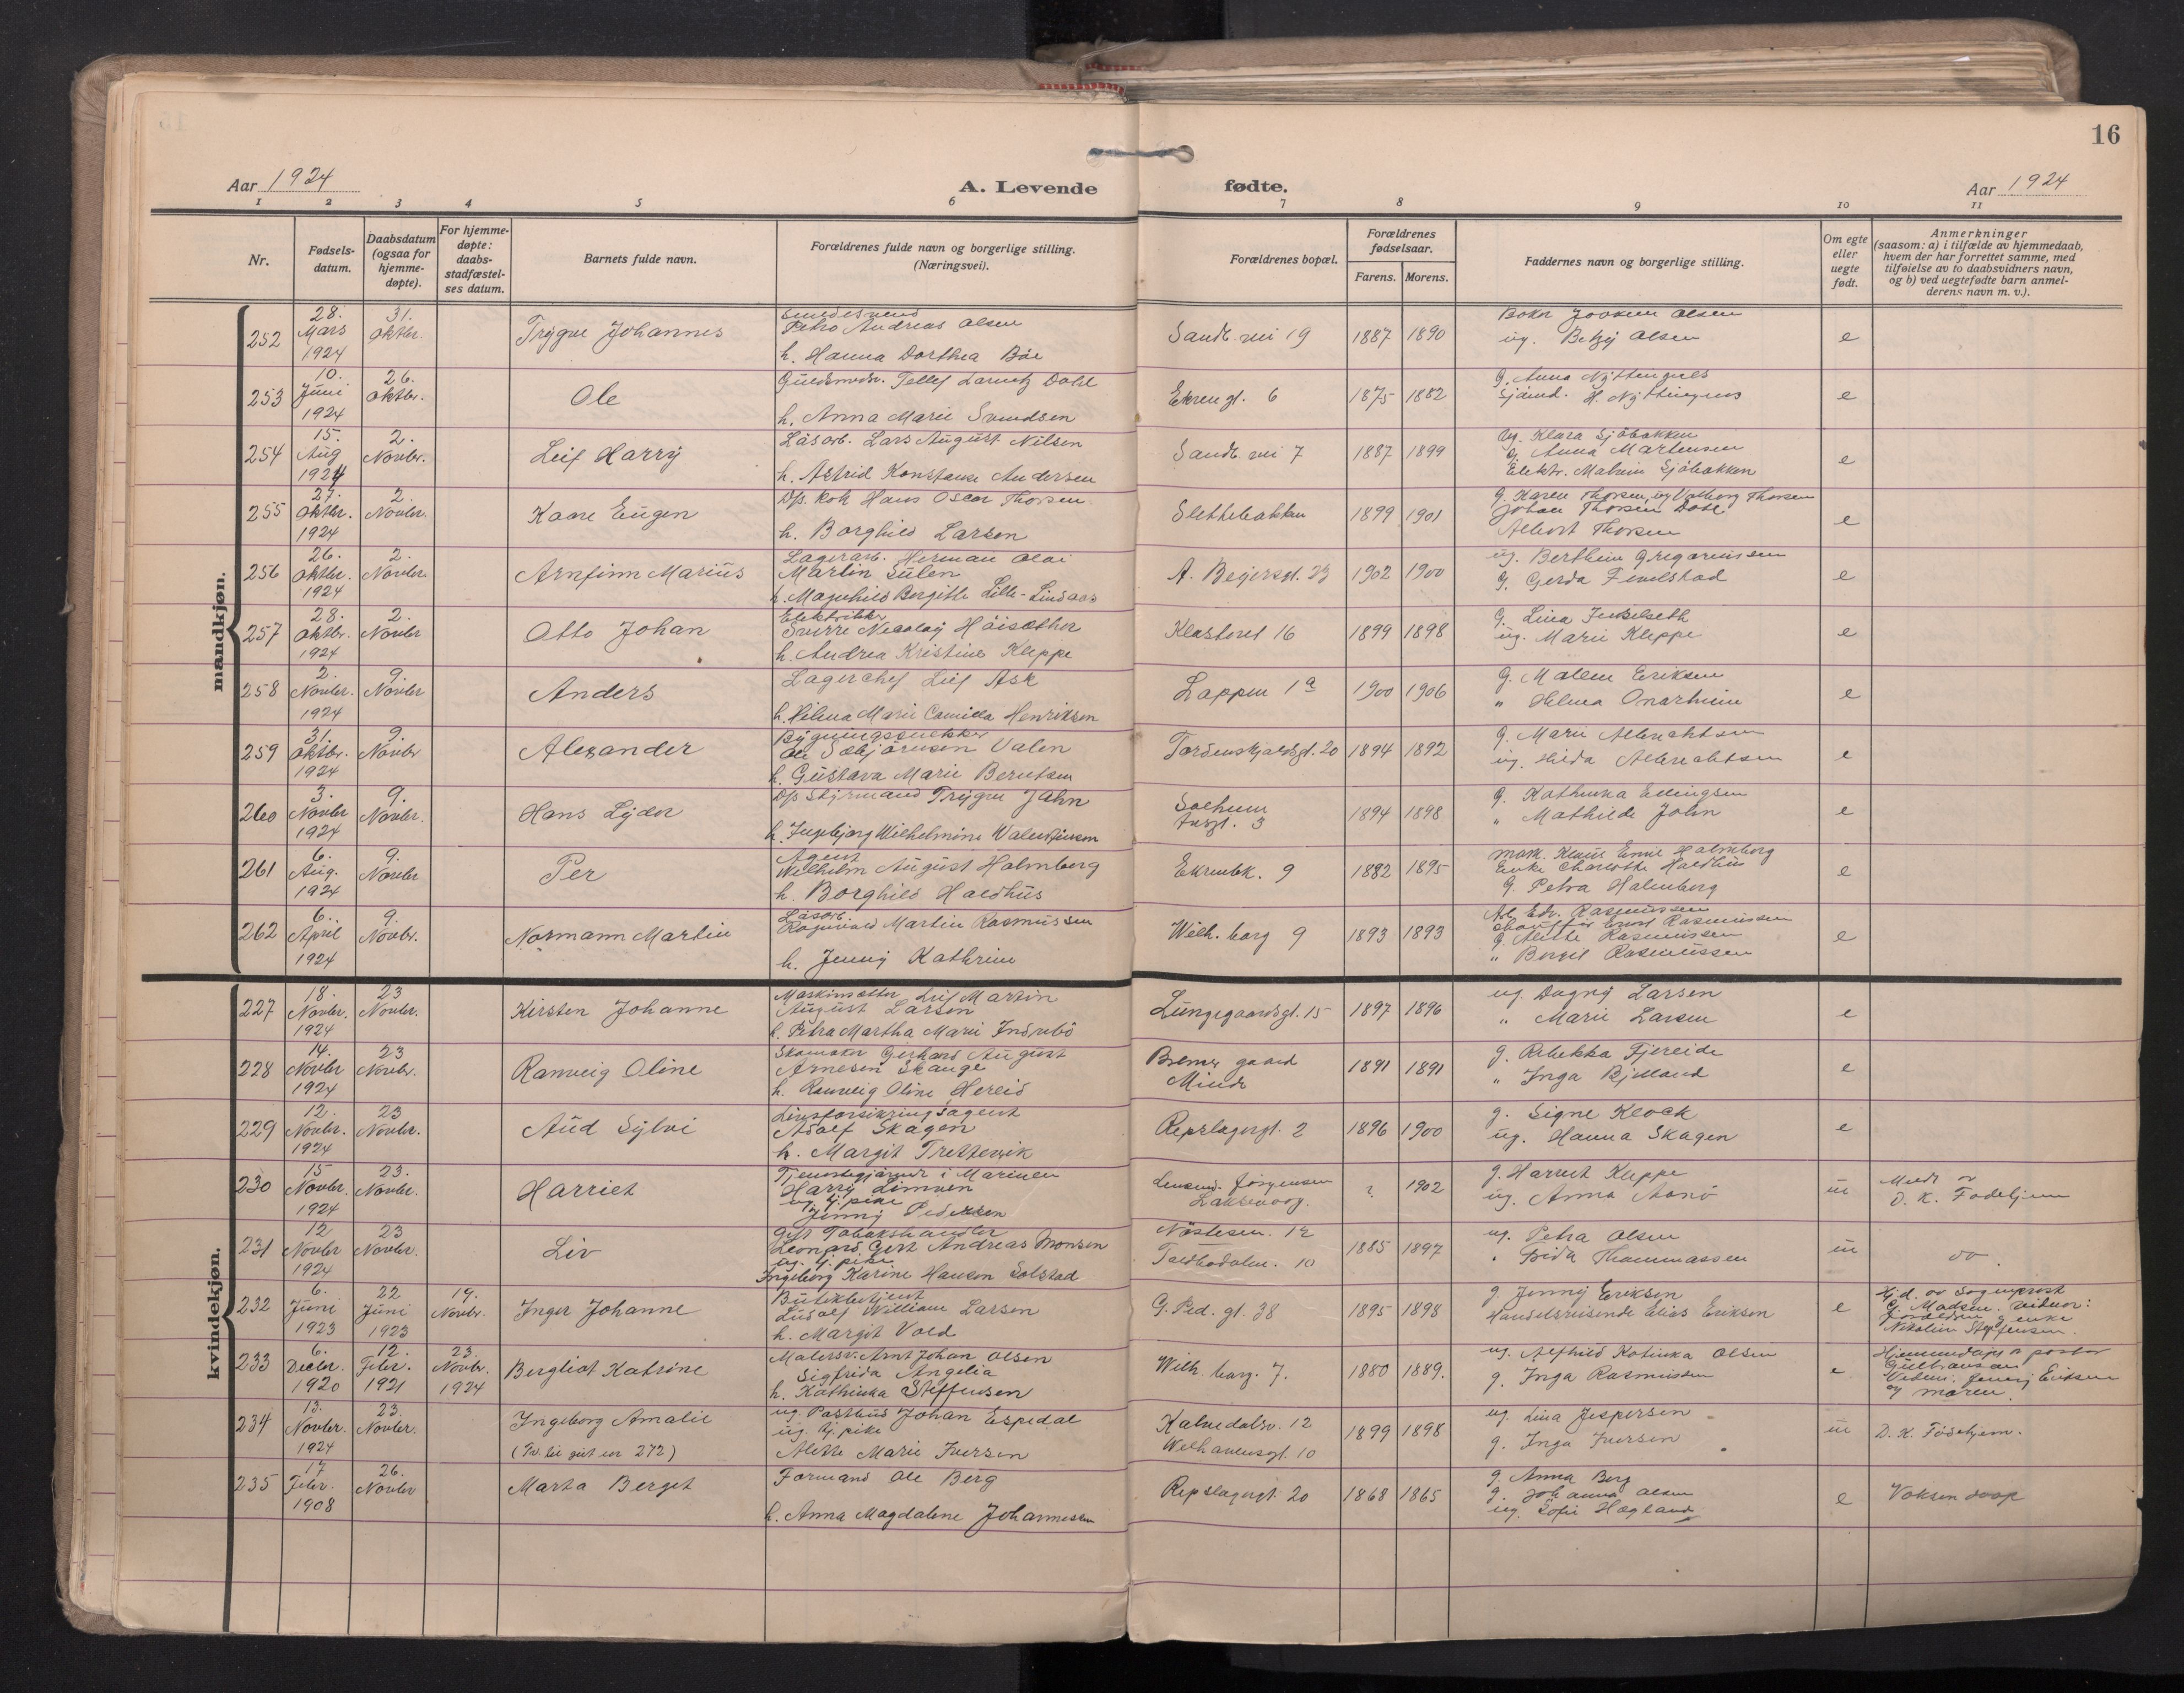 16
Aar 1924
A. Levende fødte.
Aar 1924
1 2 3 4 5 6 7 8 9 10 11
Nr.
Fødsels-
datum.
Daabsdatum
(ogsaa for
hjemme-
døpte).
For hjemme-
døpte:
daabs-
stadfæstel-
ses datum.
Barnets fulde navn.
Forældrenes fulde navn og borgerlige stilling.
(Næringsvei).
Forældrenes bopæl.
Forældrenes
fødselsaar.
Farens. Morens.
Faddernes navn og borgerlige stilling.
Om egte
eller
uegte
født.
Anmerkninger
(saasom: a) i tilfælde av hjemmedaab,
hvem der har forrettet samme, med
tilføielse av to daabsvidners navn,
og b) ved uegtefødte barn anmel-
derens navn m. v.).
mandkjøn.
252
28. Mars 1924
31. Oktbr.
Trygve Johannes
Smedesvend
Petro Andreas Olsen
h. Hanna Dorthea Böe
Sandb. vei 19
1887 1890
Joakim Olsen
ug. Betzy Olsen
e
253
10. Juni 1924
26. Oktbr.
Ole
Tellef Larentz Dahl
h. Anna Marie Svendsen
Ekrengt. 6
1875 1882
G. Anna
e
254
15. Aug 1924
2. Novbr.
Leif Harry
Løsarb. Lars August Nilsen
h. Astrid Konstanse Andersen
Sandb. vei 7
1887 1899
Ug. Klara Sjöbakken
G. Anna Martensen
Elektr. Sjöbakken
e
255
27. Oktbr. 1924
2. Novbr.
Kaare Eugen
D/s. kok Hans Oscar Thorsen
h. Borghild Larsen
Slettebakken
1899 1901
G. Karen Thorsen, ug Valborg Thorsen
Johan Thorsen
Albert Thorsen
e
256
26. Oktbr. 1924
2. Novbr.
Arnfinn Marius
Lagerarb. Herman Olai
Martin Sülen
h. Magnhild Bergitte Lille-Lindaas
A. Beyersgt. 23
1902 1900
ug. Berthin Gregoriussen
G. Gerda
e
257
28. Oktbr. 1924
2. Novbr
Otto Johan
Elektriker
Sverre Nicolay Höisæther
h. Andrea Kristine Kleppe
Klosteret 16
1899 1898
G. Lina
ug. Marie Kleppe
e
258
2. Novbr. 1924
9. Novbr
Anders
Lagerchef Leif Ask
h. Helena Marie Camilla Henriksen
Lappen 1a
1900 1906
G. Malene Eriksen
" Helena Onarheim
e
259
31. Oktbr. 1924
9. Novbr
Alexander
Bygningssnekker
Ole Sæbjörnsen Valen
h. Gustava Marie Berntsen
Tordenskjoldsgt. 20
1894 1892
G. Marie Albrechtsen
ug. Hilda Albrechtsen
e
260
3. Novbr 1924
9. Novbr.
Hans Lyder
D/s Styrmand Trygve Jahn
h. Ingebjorg Wilhelmine Valentinsen
Solheim
3
1894 1898
G. Kathinka Ellingsen
" Mathilde John
e
261
6. Aug. 1924
9. Novbr
Per
Agent
Wilhelm August Halmberg
h. Borghild Haldhus
Ekrenbk. 9
1882 1895
Mask. Klaus Emil Halmberg
Enke Charlotte Haldhus
G. Petra Halmberg
e
262
6. April 1924
9. Novbr.
Normann Martin
Løsarb.
Ragnvald Martin Rasmussen
h. Jenny Kathrine
Wilh. borg 9
1893 1893
Arb. Edv. Rasmussen
Chauffør Rasmussen
G. Rasmussen
" Rasmussen
e
kvindekjøn.
227
18. Novbr. 1924
23 Novbr.
Kirsten Johanne
Maskinsetter Leif Martin
August Larsen
h. Petra Martha Marie Indrebö
Lungegaardsgt. 15
1897 1896
ug. Dagny Larsen
" Marie Larsen
e
228
14. Novbr 1924
23 Novbr.
Ranveig Oline
Skomaker Gerhard August
Arnesen Skauge
h. Ranveig Oline Hereid
gaard
Minde
1891 1891
g. Rebekka Fjereide
" Inga Bjelland
e
229
12. Novbr. 1924
23 Novbr.
Aud Sylvi
Livsforsikringsagent
Adolf Skagen
h. Margit Trettevik
Repslagergt. 2
1896 1900
g. Signe Klock
ug. Hanna Skagen
e
230
15 Novbr. 1924
23. Novbr.
Harriet
Tjenestegjörende i Marinen
Harry Limven
ug tj. pike
Jenny Pedersen
Jörgensen
Laksevaag.
? 1902
g. Harriet Kleppe
ug. Anna
ue
D. K. Fødehjem
231
12 Novbr 1924
23 Novbr.
Liv
Gift Tobakshandler
Leonard Gert Andreas Monsen
ug. tj. pike
Ingeborg Karine Hansen Solstad
Nöstesm. 12
Toldbodalm. 10
1885 1897
ug. Petra Olsen
" Thommassen
ue
232
6. Juni 1923
22 Juni 1923
19. Novbr.
Inger Johanne
Butikbetjent
Ludolf William Larsen
h. Margit Vold
G. Ped. gt. 38
1895 1898
g. Jenny Eriksen
Handelsreisende Elias Eriksen
e
Hj.d. av Sogneprest
G. Madsen. Vidner:
Foreldrene g enke
Nikoline Steffensen.
233
6. Decbr. 1920
12. Febr. 1921
23. Novbr. 1924
Bergliot Katrine
Malersv. Arnt Johan Olsen
Sigfrida Angelia
h. Kathinka Steffensen
Wilh. borg. 7.
1880 1889.
ug. Alfhild Katinka Olsen
g. Inga Rasmussen
e
Hjemmedøpt av pastor
Gulbransen
Vidner. Jenny Eriksen
og moren.
234
13. Novbr. 1924
23. Novbr.
Ingeborg Amalie
(Tv. lie gut nr 272)
ug. Postbud Johan Espedal
ug. tj. pike
Alette Marie Iversen
Kalvedalsv. 12
10
1899 1898
ug. Lina Jespersen
g. Inga Iversen
ue
D. K. Födehjem.
235
17 Febr. 1908
26. Novbr
Marta Berget
Formand Ole Berg
h. Anna Magdalene Johannessen
Repslagergt. 20
1868 1865
g. Anna Berg
g. Johanna Olsen
ug. Sofie Hagland
e
Voksen daap